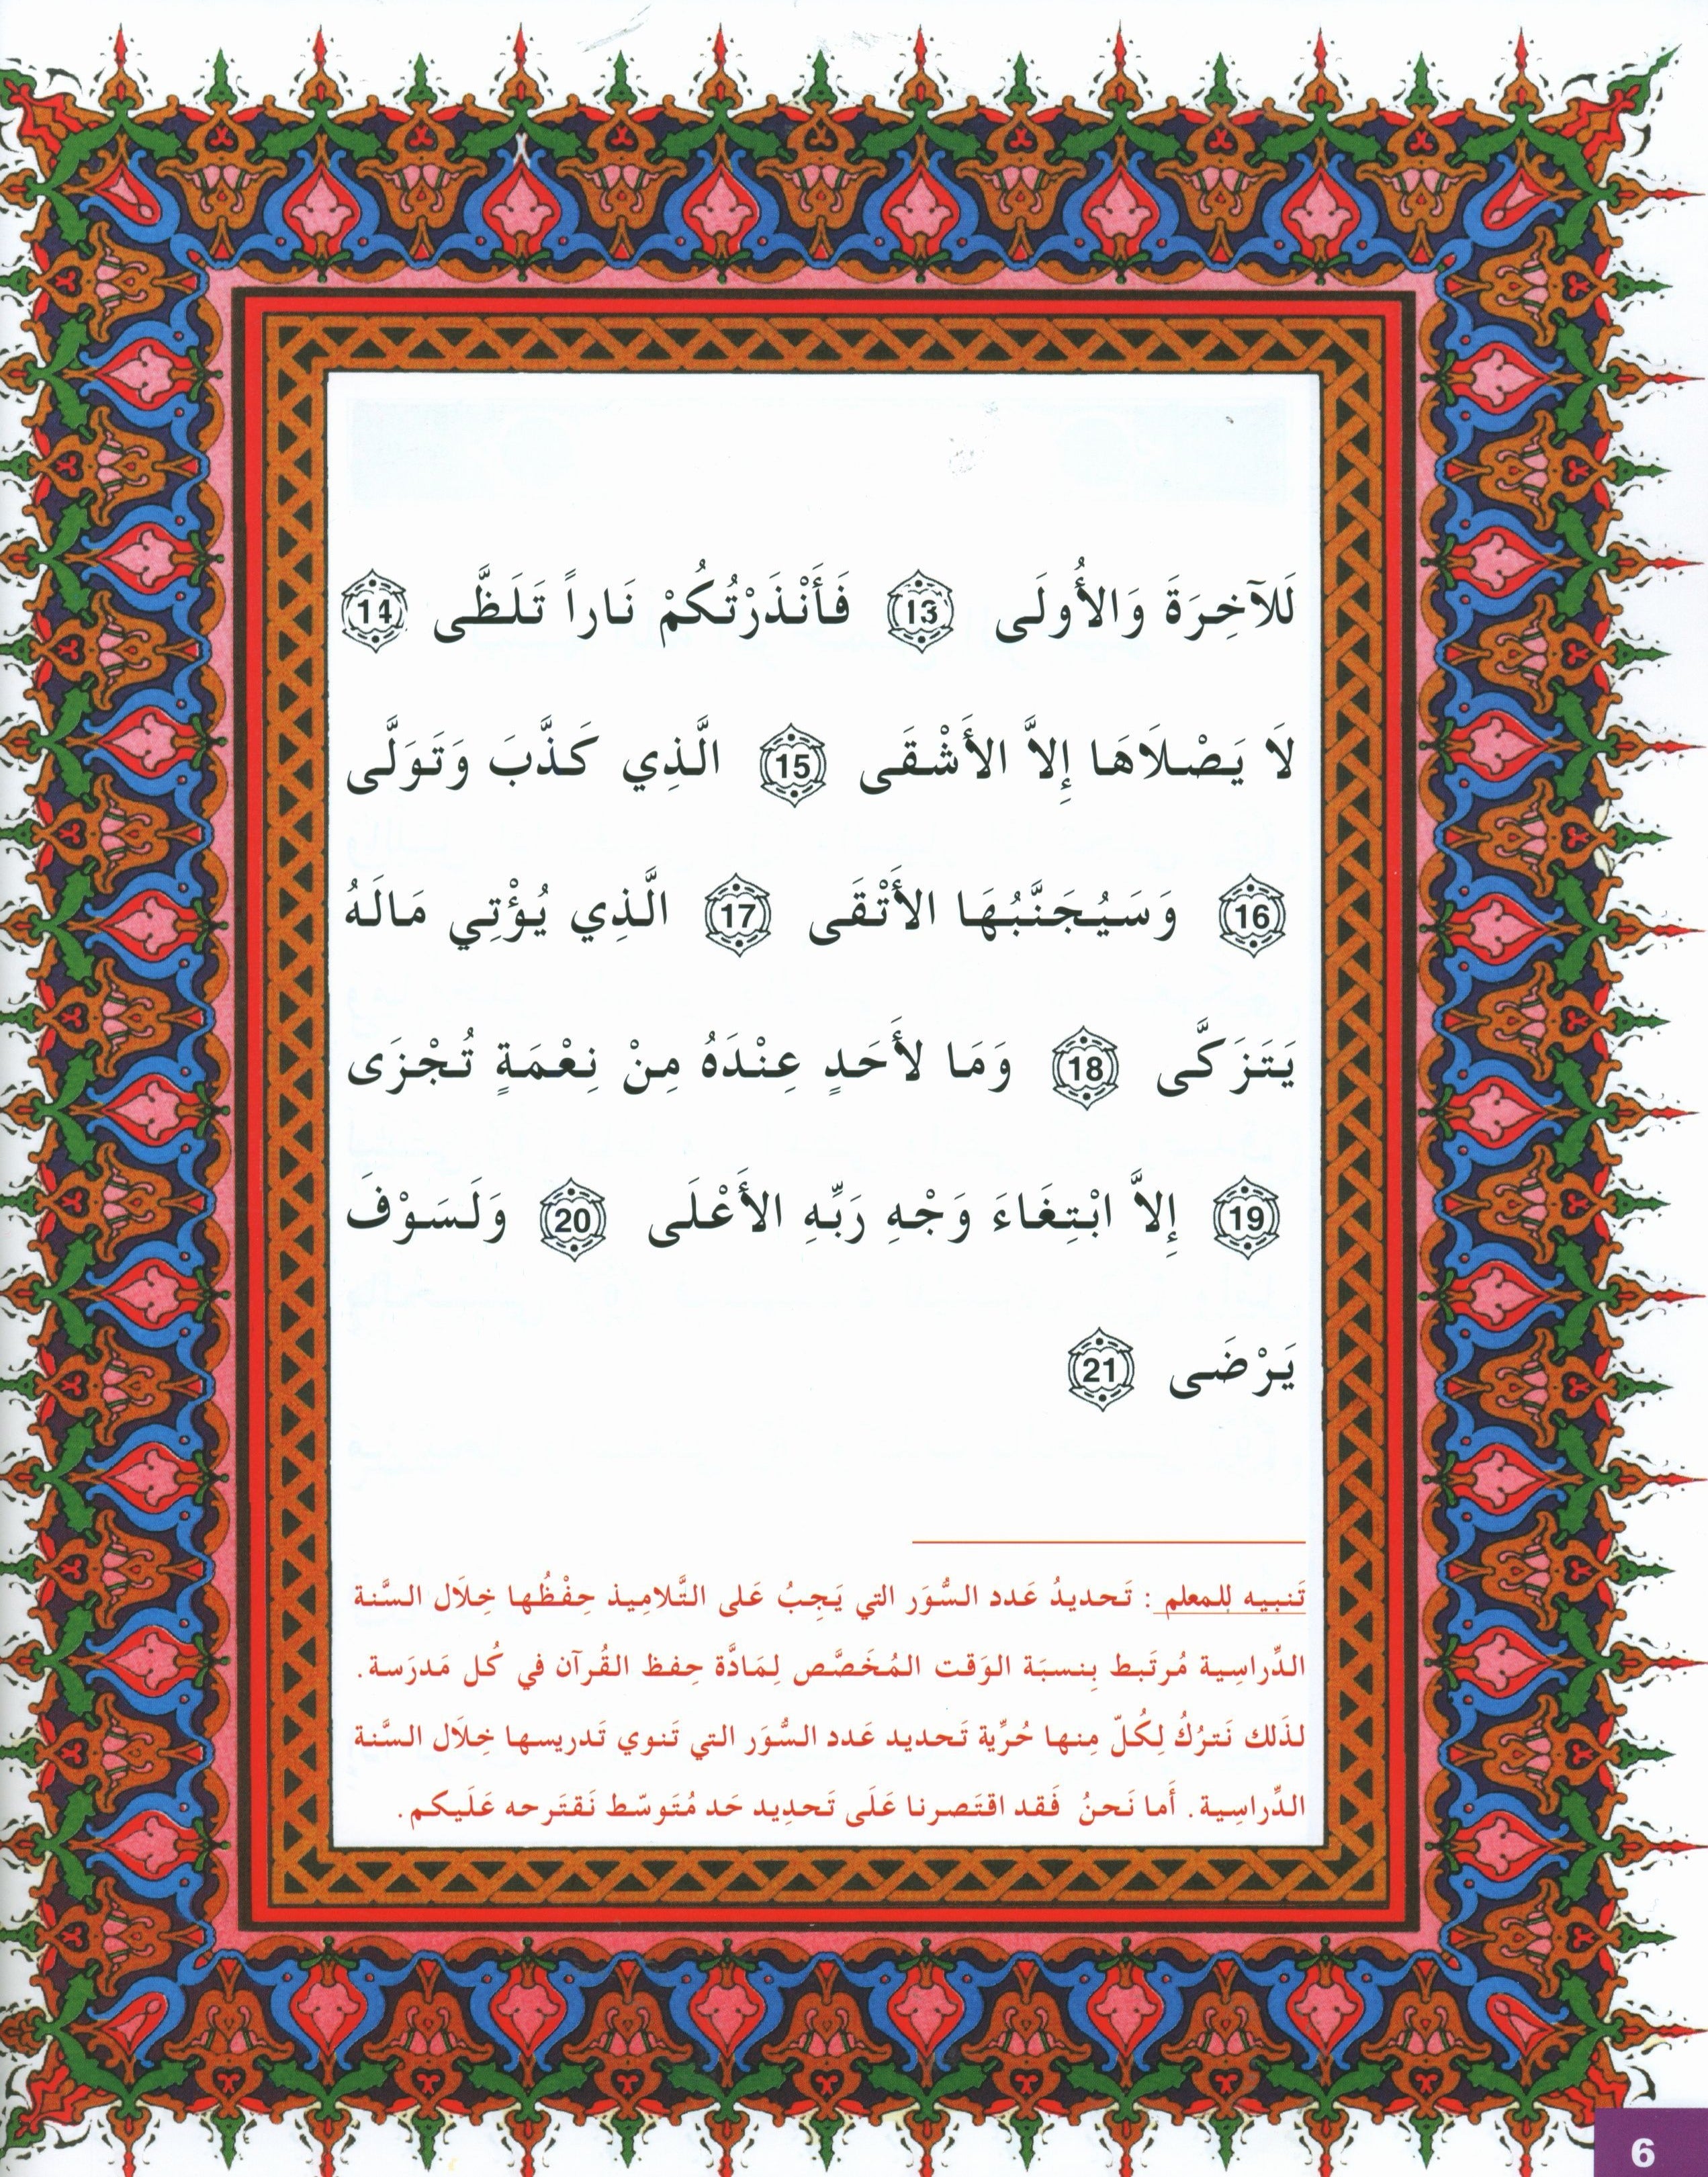 لَلآخِرَةَ وَالأُولَى 13 فَأَنْذَرْتُكُمْ نَاراً تَلَظَّى 14
لَا يَصْلَاهَا إِلاَّ الأَشْقَى 15 الَّذِي كَذَّبَ وَتَوَلَّى
16 وَسَيُجَنَّبُهَا الأَتْقَى 17 الَّذِي يُؤْتِي مَالَهُ
يَتَزَكَّى 18 وَمَا لأَحَدٍ عِنْدَهُ مِنْ نِعْمَةٍ تُجْزَى
19 إِلاَّ ابْتِغَاءَ وَجْهِ رَبِّهِ الأَعْلَى 20 وَلَسَوْفَ
يَرْضَى 21
تَنبيه لِلمعلم : تَحديدُ عَدد السُّوَر التي يَجِبُ عَلى التَّلامِيذ حِفْظُها خِلَال السَّنة
الدِّراسِية مُرتَبط بِنسبَة الوَقت المُخَصَّص لِمَادَّة حِفظ القُرآن في كُل مَدرَسة .
لذَلك نَترُكُ لِكُلّ مِنها حُرِّية تَحديد عَدد السُّوَر التي تَنوي تَدريسها خِلَال السَّنة
الدِّراسِية . أَما نَحنُ فَقد اقتَصرنا عَلَى تَحدِيد حَد مُتَوسّط نَقتَرحه عَلَيكم .
6